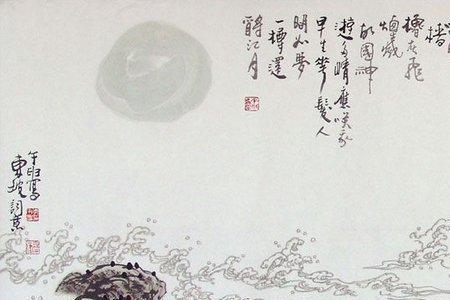 檣
櫓灰飛
煙滅
故國神
遊多情應笑我
早生華髮人
間如夢
一樽還
酹江月
東坡詞意